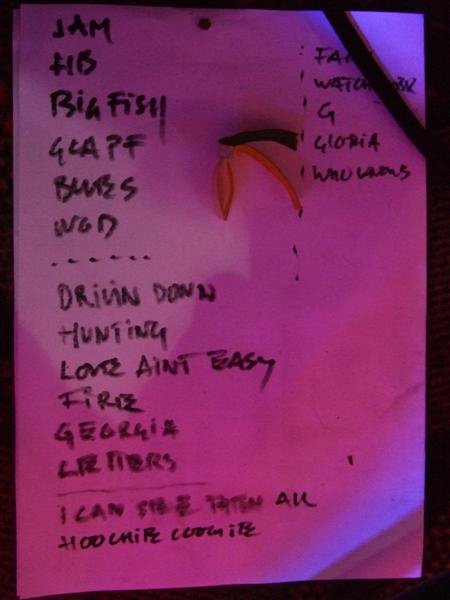 JAM
HB
BIG FISH
GLAPF
BLUES
WGD
DRIVIN DOWN
HUNTING
LOVE AINT EASY
FIRE
GEORGIA
LETTERS
I CAN SEE THEM ALL
HOOCHIE COOCHIE
G
GLORIA
WHO KNOWS